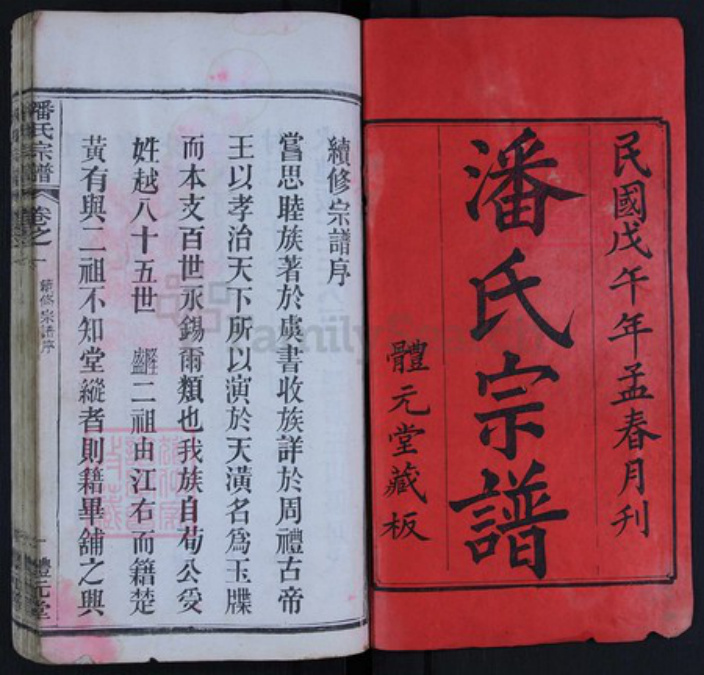 民國戊午年孟春月刊
潘氏宗譜
體元堂藏板
續修宗譜序
嘗思睦族著於虞書收族詳於周禮古帝
王以孝治天下所以演於天潢名爲玉牒
而本支百世永錫爾類也我族自荀公受
姓越八十五世 隆盛二祖由江右而籍楚
黃有與二祖不知堂縱者則籍畢舖之與
潘氏宗譜
卷之一
續修宗譜序
一
體元堂
FamilySearch